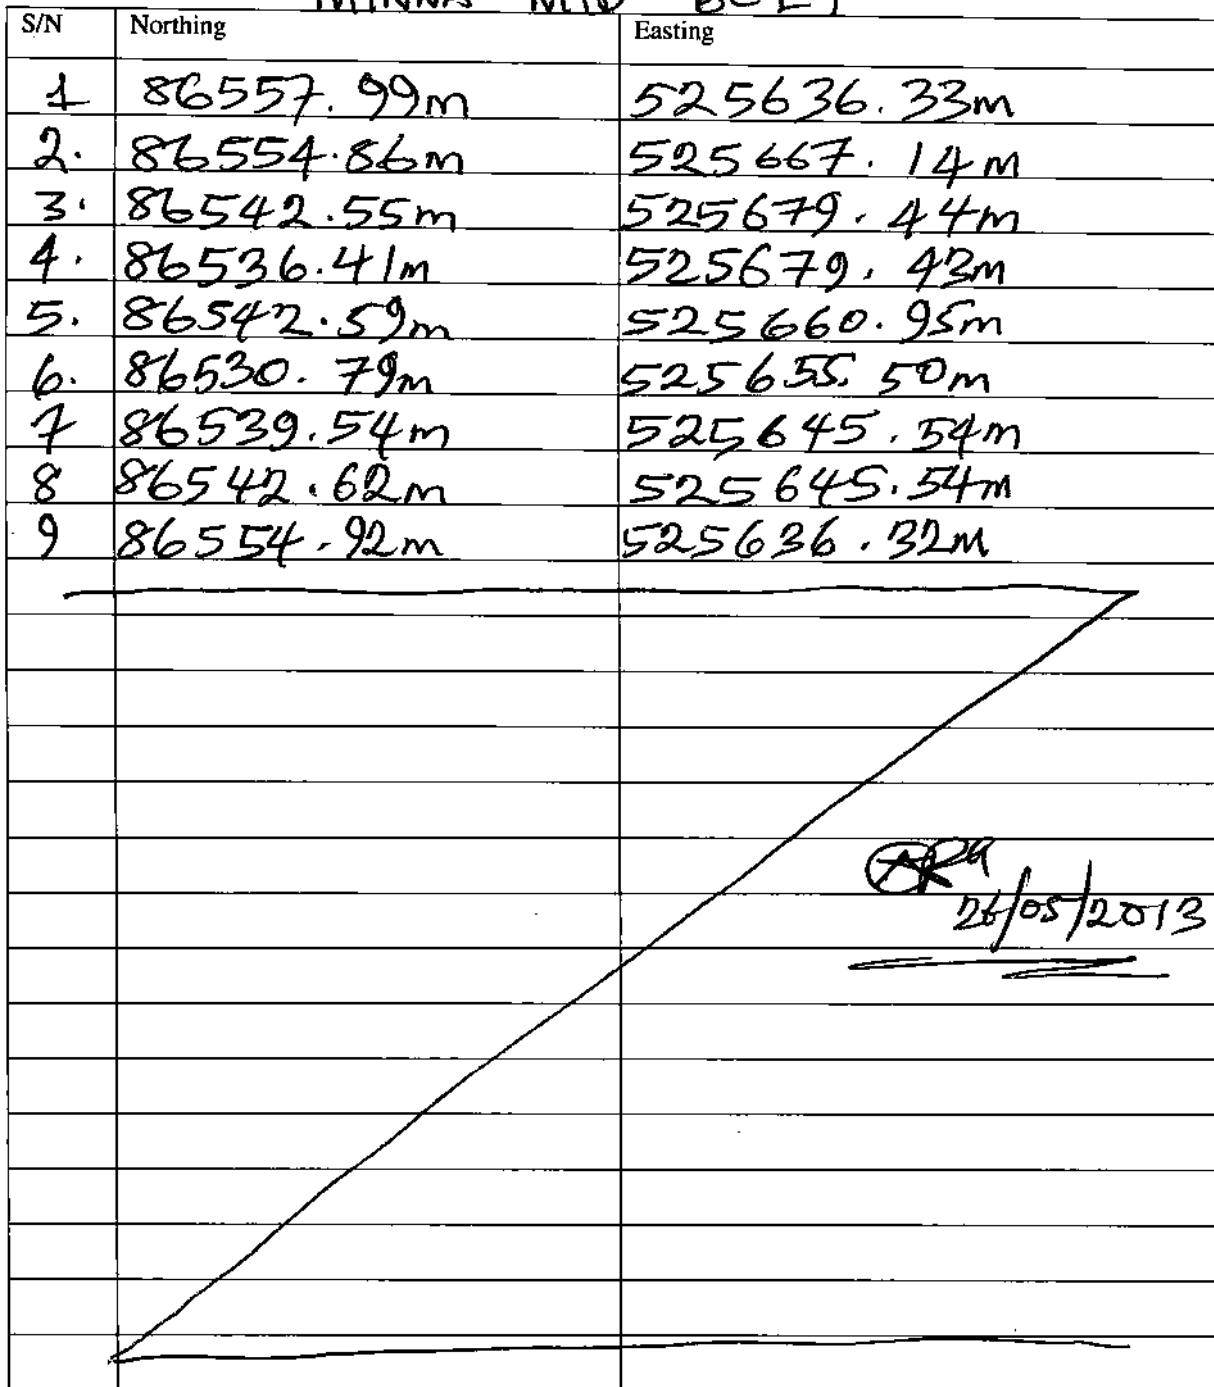 MINNA MID BELT
S/N Northing Easting
1 86557.99m 525636.33m
2. 86554.86m 525667.14m
3. 86542.55m 525679.44m
4. 86536.41m 525679.43m
5. 86542.59m 525660.95m
6. 86530.79m 525655.50m
7 86539.54m 525645.54m
8 86542.62m 525645.54m
9 86554.92m 525636.32m
26/05/2013